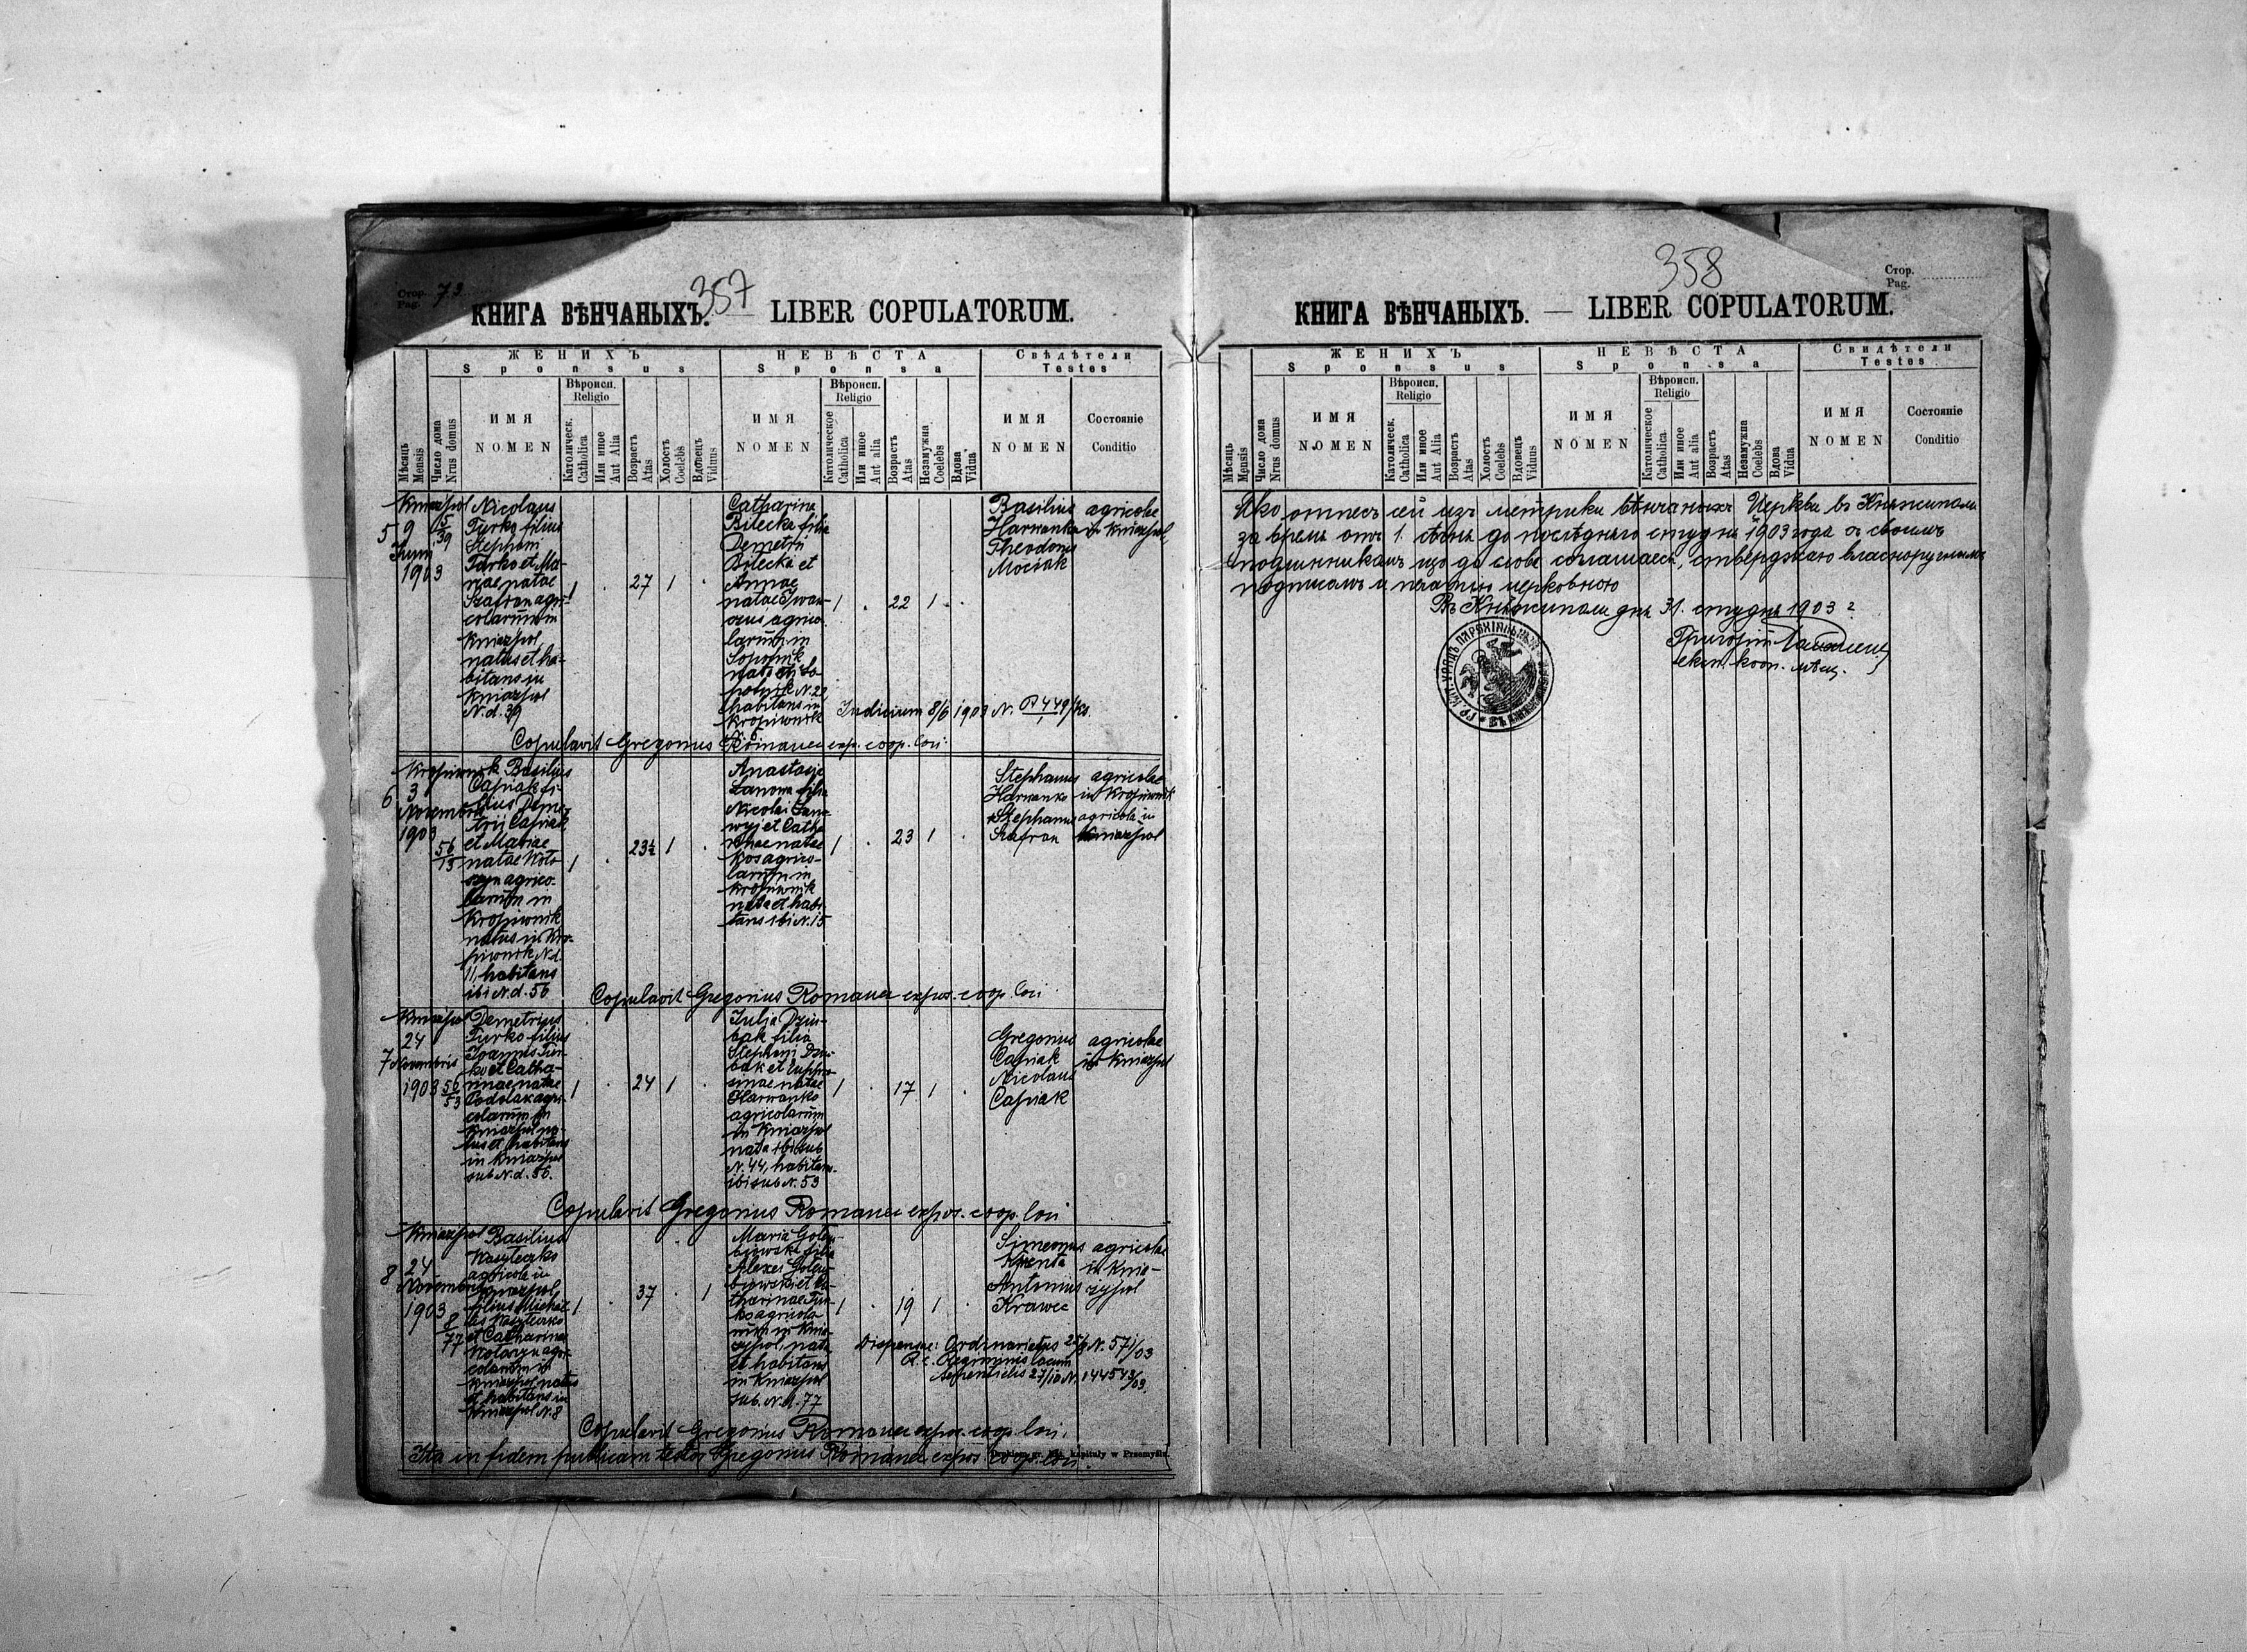 Стор. Pag. 73
357
КНИГА ВѢНЧАНЫХЪ. — LIBER COPULATORUM.
ЖЕНИХЪ
Sponsus
НЕВѢСТА
Sponsa
Свѣдѣтели
Testes
Мѣсяць Mensis
Число дома Nrus domus
ИМЯ
NOMEN
Вѣроисп.
Religio
Католическ. Catholica
Или иное Aut Alia
Возрастъ Atas
Холостъ Coelebs
Вдовецъ Viduus
ИМЯ
NOMEN
Вѣроисп.
Religio
Католическое Catholica
Или иное Aut alia
Возрастъ Atas
Незамужна Coelebs
Вдова Vidua
ИМЯ
NOMEN
Состояніе
Conditio
5
Kniażpol
9
Junii
1903
5/39
Nicolaus
Turko filius
Stephani
Turko et Ma-
riae natae
Szafran agri-
colarum in
Kniazpol,
natus et ha-
bitans in
Kniazpol
N. d. 39
1 . 27 1 .
Catharina
Bilecka filia
Demetrii
Bilecka et
Annae
natae Iwan-
agrico
larum in
Sopotnik
nata in So
potnik N. 22
habitans in
Kropiwnik
N. 5
1 . 22 1 .
Basilius
Harwanko
Theodorus
Mociak
agricolae
in Kniazpol
Judicium 8/6 1903 N.
Copulavit Gregorius Romanec exp. coop. loci
6
Kropiwnik
3
Novembris
1903
56/15
Basilius
Capiak fi-
lius Deme-
trii Capiak
et Mariae
natae Woło-
szyn agrico-
larum in
Kropiwnik
natus in Kro-
piwnik N. d.
11, habitans
ibi N. d. 56
1 . 23½ 1 .
Anastasia
Łanowa filia
Nicolai Łano-
wyj et Catha
rinae natae
Kos agrico-
larum in
Kropiwnik
nata et habi-
tans ibi N. 15
1 . 23 1 .
Stephanus
Harwanko
Stephanus
Szafran
agricolae
in Kropiwnik
agricola in
Kniazpol
Copulavit Gregorius Romanec expos. coop. loci
7
Kniażpol
24
Novembris
1903
56/53
Demetrius
Turko filius
Ioannis Tur-
ko et Catha-
rinae natae
Podolak agri-
colarum in
Kniazpol na-
tus et habitans
in Kniazpol
sub N. d. 56.
1 . 24 1 .
Iulia Dziu-
bak filia
Stephani Dziu-
bak et Euphro-
sinae natae
Harwanko
agricolarum
in Kniazpol
nata ibi sub
N. 44, habitans
ibi sub N. 53
1 . 17 1 .
Gregorius
Capiak
Nicolaus
Capiak
agricolae
in Kniazpol
Copulavit Gregorius Romanec expos. coop. loci
8
Kniażpol
24
Novembris
1903
8/77
Basilius
Waszteczko
agricola in
Kniazpol,
filius Michae-
lis Waszteczko
et Catharinae
Wołoszyn agri-
colarum in
Kniazpol natus
et habitans in
Kniazpol N. 8
1 . 37 . 1
Maria Golem-
biowska filia
Alexei Golem-
biowski et Ca-
tharinae Tur-
ko agricola-
rum in Knia-
zypol, nata
et habitans
in Kniazpol
sub. N. d. 77
1 . 19 1 .
Simeonus
Antonius
Krawec
agricolae
in Knia-
zypol
Dispensae: Ordinariatus N. 571/03
R. c. Regiminis locum
tenentialis 27/10 N. 144543/03
Copulavit Gregorius Romanec expos. coop. loci.
Ita in fidem publicam testor Gregorius Romanec expos. coop. loci.
358
Стор.
Pag.
КНИГА ВѢНЧАНЫХЪ. — LIBER COPULATORUM.
ЖЕНИХЪ
Sponsus
НЕВѢСТА
Sponsa
Свидѣтели
Testes
Мѣсяць Mensis
Число дома Nrus domus
ИМЯ
NOMEN
Вѣроисп.
Religio
Католическ. Catholica
Или иное Aut Alia
Возрастъ Atas
Холостъ Coelebs
Вдовецъ Viduus
ИМЯ
NOMEN
Вѣроисп.
Religio
Католическое Catholica
Или иное Aut alia
Возрастъ Atas
Незамужна Coelebs
Вдова Vidua
ИМЯ
NOMEN
Состояніе
Conditio
Яко отпесъ сей изъ метрики вѣнчаныхъ Церкви въ Княжиполи
за время отъ 1. сѣчня до послѣдняго студня 1903 года съ своимъ
подлинникамъ що до слова соглашаеся, ствердждаю власноручнымъ
подписомъ и печатію церковною
Въ Княжиполи дня 31. студня 1903 г
Григорій
експ. кооп. мѣсц.